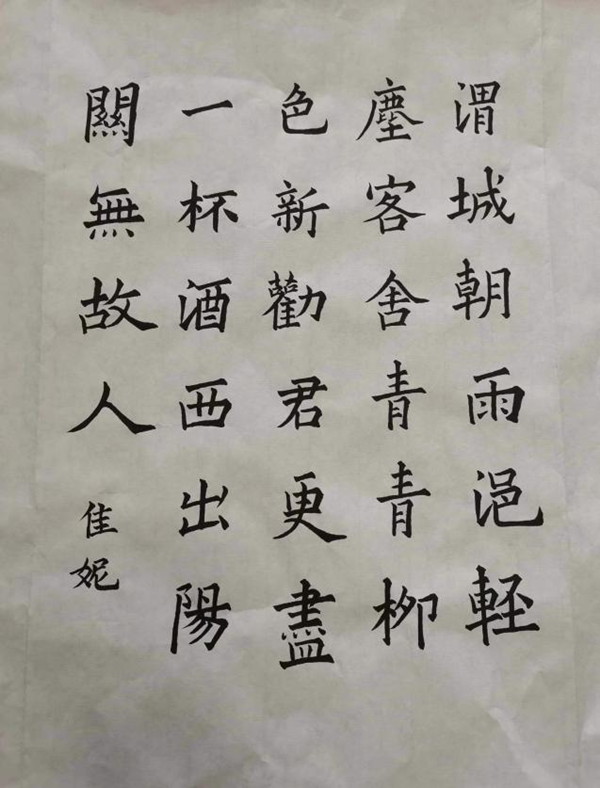 渭城朝雨浥輕
塵客舍青青柳
色新勸君更盡
一杯酒西出陽
關無故人
佳妮